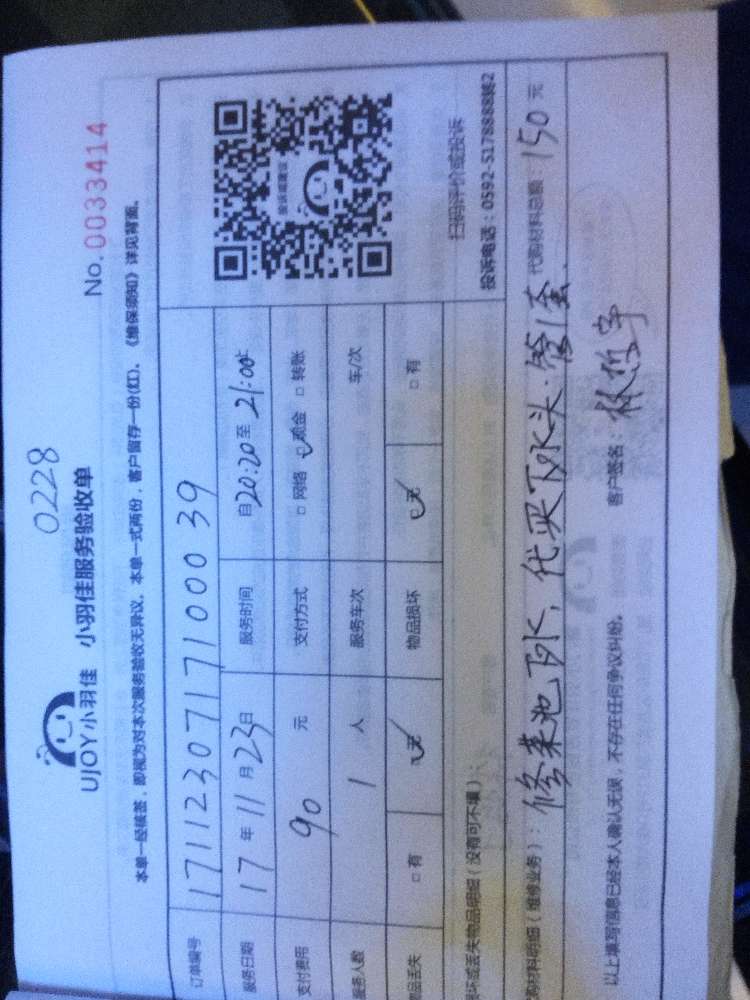 0228
UJOY小羽佳 小羽佳服务验收单
No.0033414
本单一经核签,即视为对本次服务验收无异议,本单一式两份,客户留存一份(红)。《维保须知》详见背面。
订单编号 171123071710000 39
服务日期 17年11月23日 服务时间 自20:20至21:00止
支付费用 90 元 支付方式 □网络 ☑现金 □转账
服务人数 1 人 服务车次 车/次
物品丢失 □有 ☑无 物品损坏 ☑无 □有
投诉或建议
扫码评价或投诉
投诉电话:0592-5178888转2
损坏或丢失物品明细(没有可不填):
代购材料明细(维修业务):修菜池下水,代买下水头.管1套. 代购材料总额:150元
以上填写信息已经本人确认无误,不存在任何争议纠纷。 客户签名: